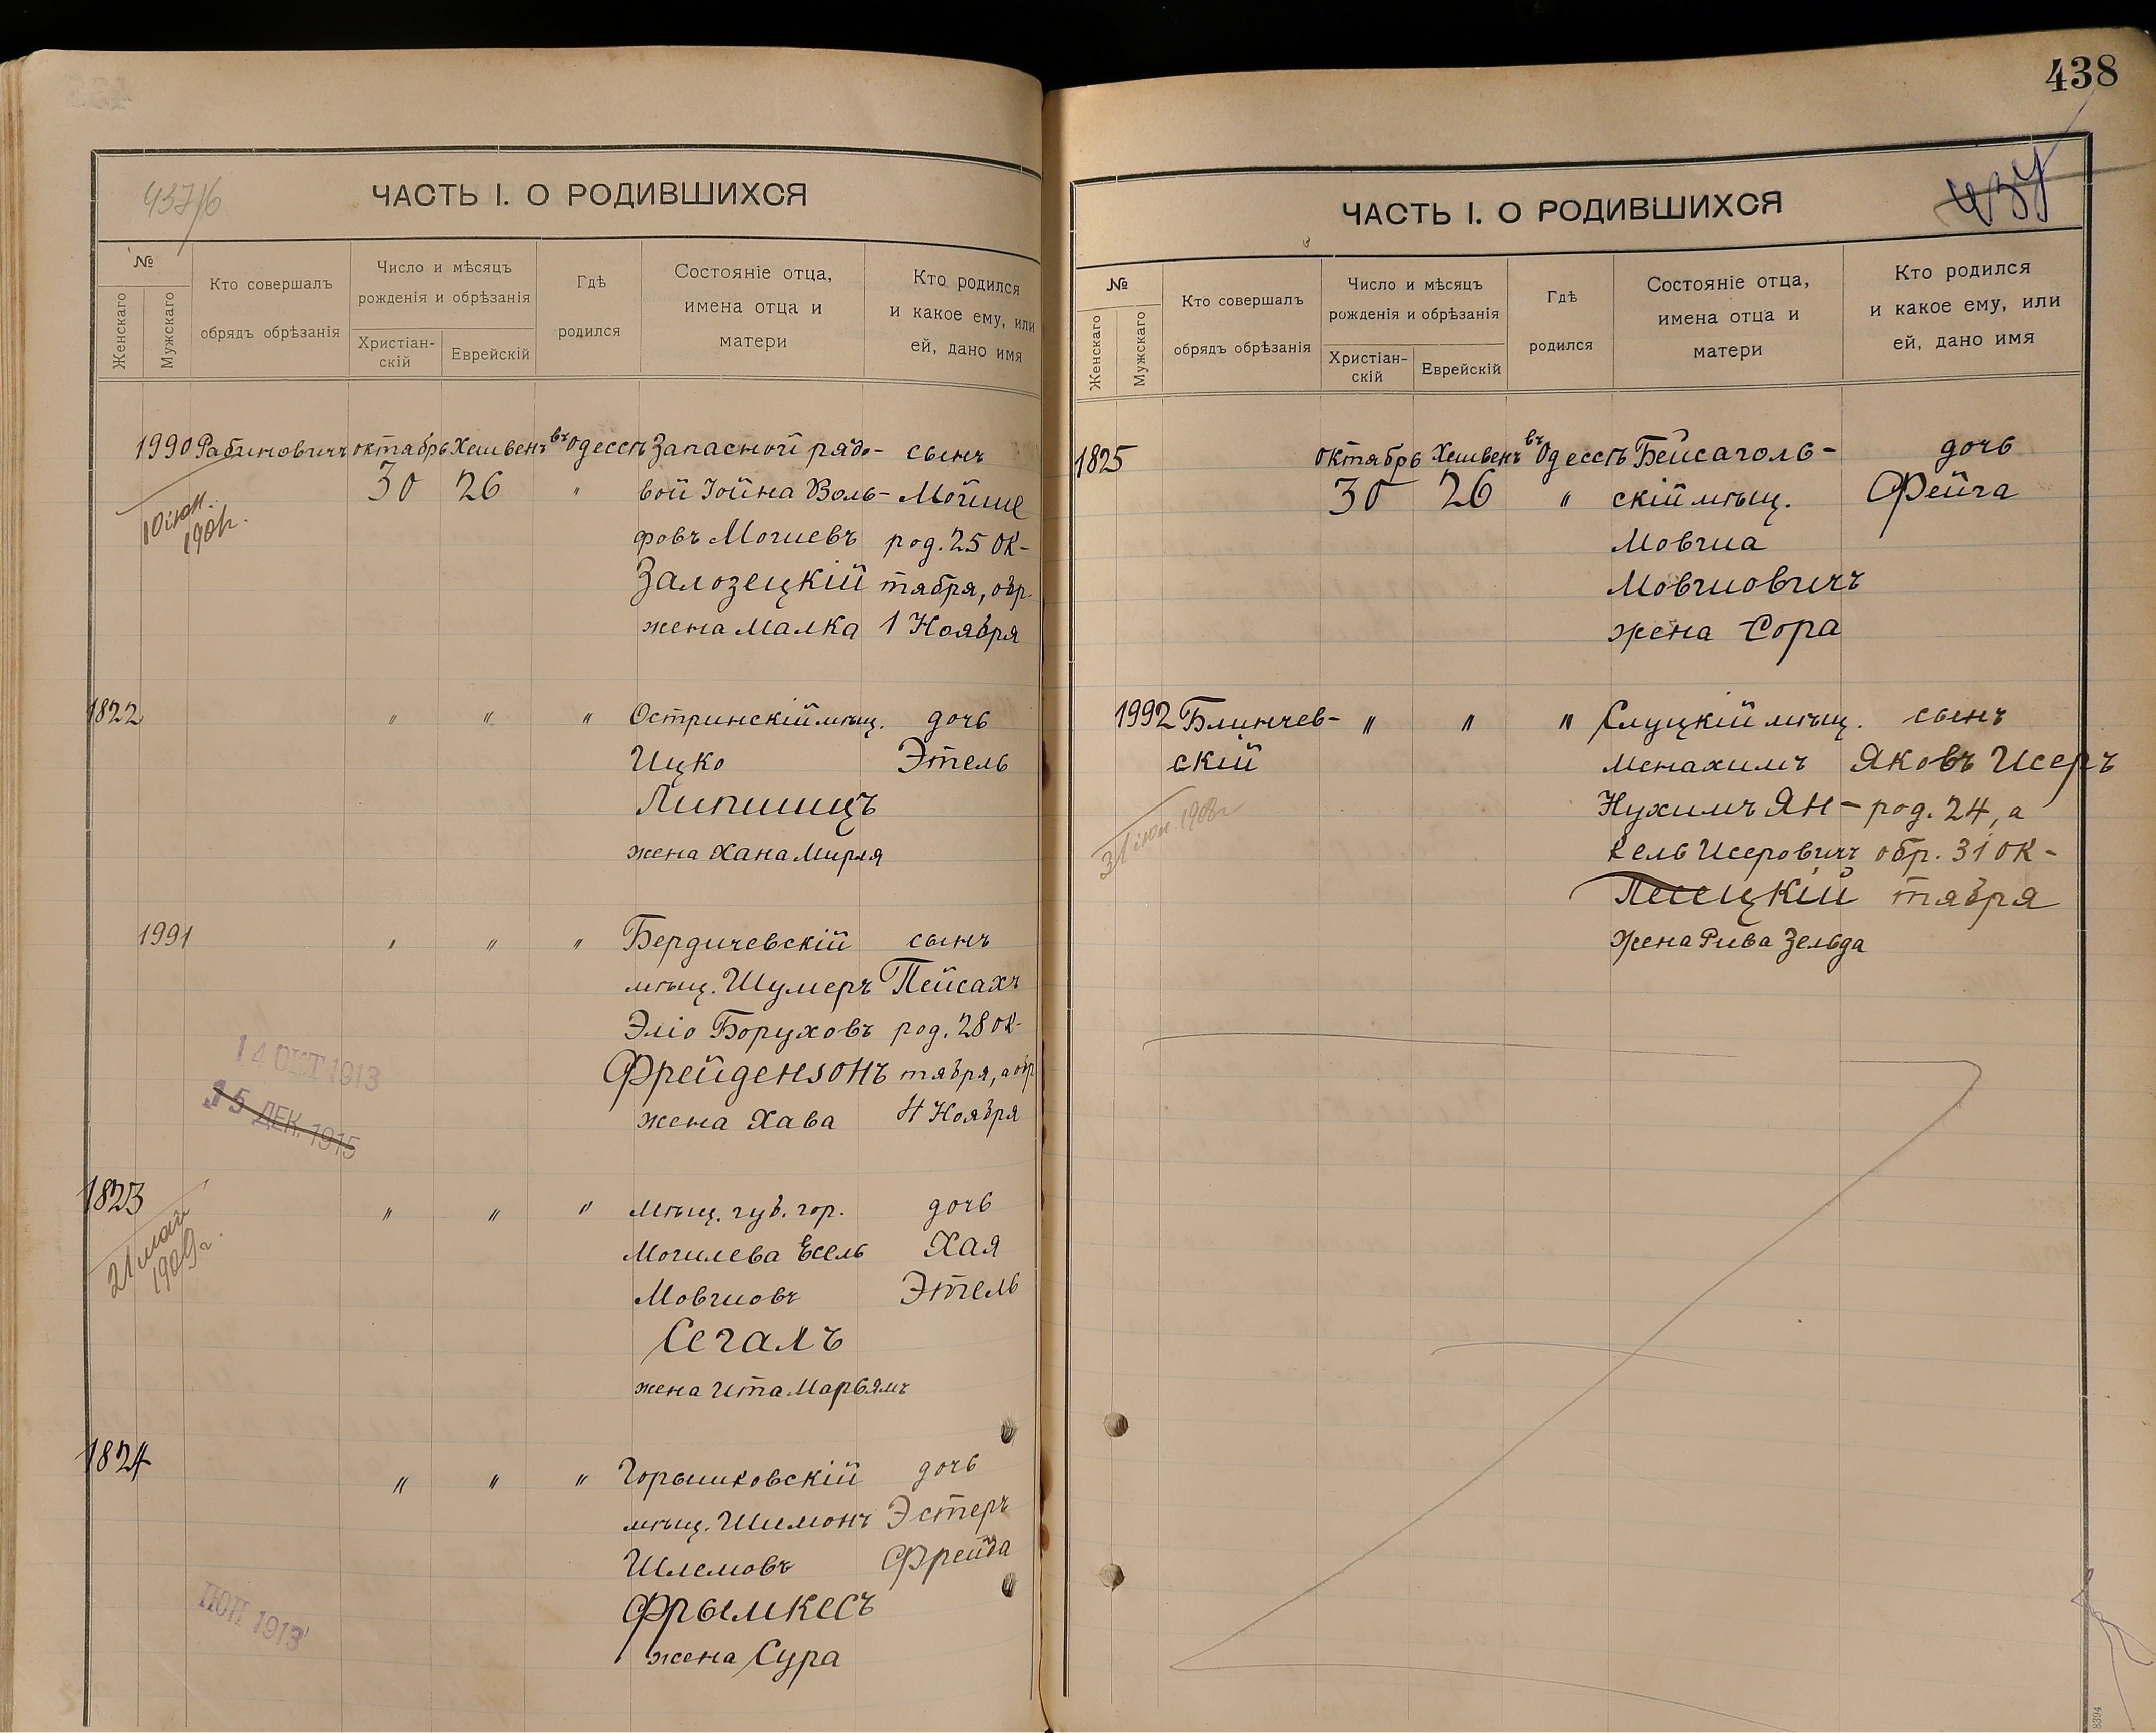 438
437/б
ЧАСТЬ I. О РОДИВШИХСЯ
№
Женскаго
Мужскаго
Кто совершалъ
обрядъ обрѣзанія
Число и мѣсяцъ
рожденія и обрѣзанія
Христіан-
скій
Еврейскій
Гдѣ
родился
Состояніе отца,
имена отца и
матери
Кто родился
и какое ему, или
ей, дано имя
1990 Рабиновичъ октябрь Хешвенъ въ Одессѣ Запасной рядо- сынъ
30 26 " вой Іойна Воль- Мойше
фовъ Мошевъ род. 25 ок-
Залозецкій тября, обр.
жена Малка 1 Ноября
10 іюн.
190 г.
1822 " " " Остринскій мѣщ. дочь
Ицко Этель
Липшицъ
жена Хана Мирля
1991 " " " Бердичевскій сынъ
мѣщ. Шумеръ Пейсахъ
Эліо Боруховъ род. 28 ок-
Фрейдензонъ тября, а обр
жена Хава 4 Ноября
14 ОКТ 1913
15 ДЕК. 1915
1823 " " " мѣщ. губ. гор. дочь
Могилева Есель Хая
Мовшовъ Этель
Сегалъ
жена Ита Марьямъ
21 мая
1909 г.
1824 " " " Горышковскій дочь
мѣщ. Шимонъ Эстеръ
Шлемовъ Фрейда
Фрымкесъ
жена Сура
ІЮН 1913
ЧАСТЬ I. О РОДИВШИХСЯ
№
Женскаго
Мужскаго
Кто совершалъ
обрядъ обрѣзанія
Число и мѣсяцъ
рожденія и обрѣзанія
Христіан-
скій
Еврейскій
Гдѣ
родился
Состояніе отца,
имена отца и
матери
Кто родился
и какое ему, или
ей, дано имя
1825 октябрь Хешвенъ въ Одессѣ Бейсаголь- дочь
30 26 " скій мѣщ. Фейга
Мовша
Мовшовичъ
жена Сора
1992 Блинчев- " " " Слуцкій мѣщ. сынъ
скій Менахимъ Яковъ Исеръ
Нухимъ Ян- род. 24, а
кель Исеровичъ обр. 31 ок-
Песецкій тября
жена Рива Зельда
8394